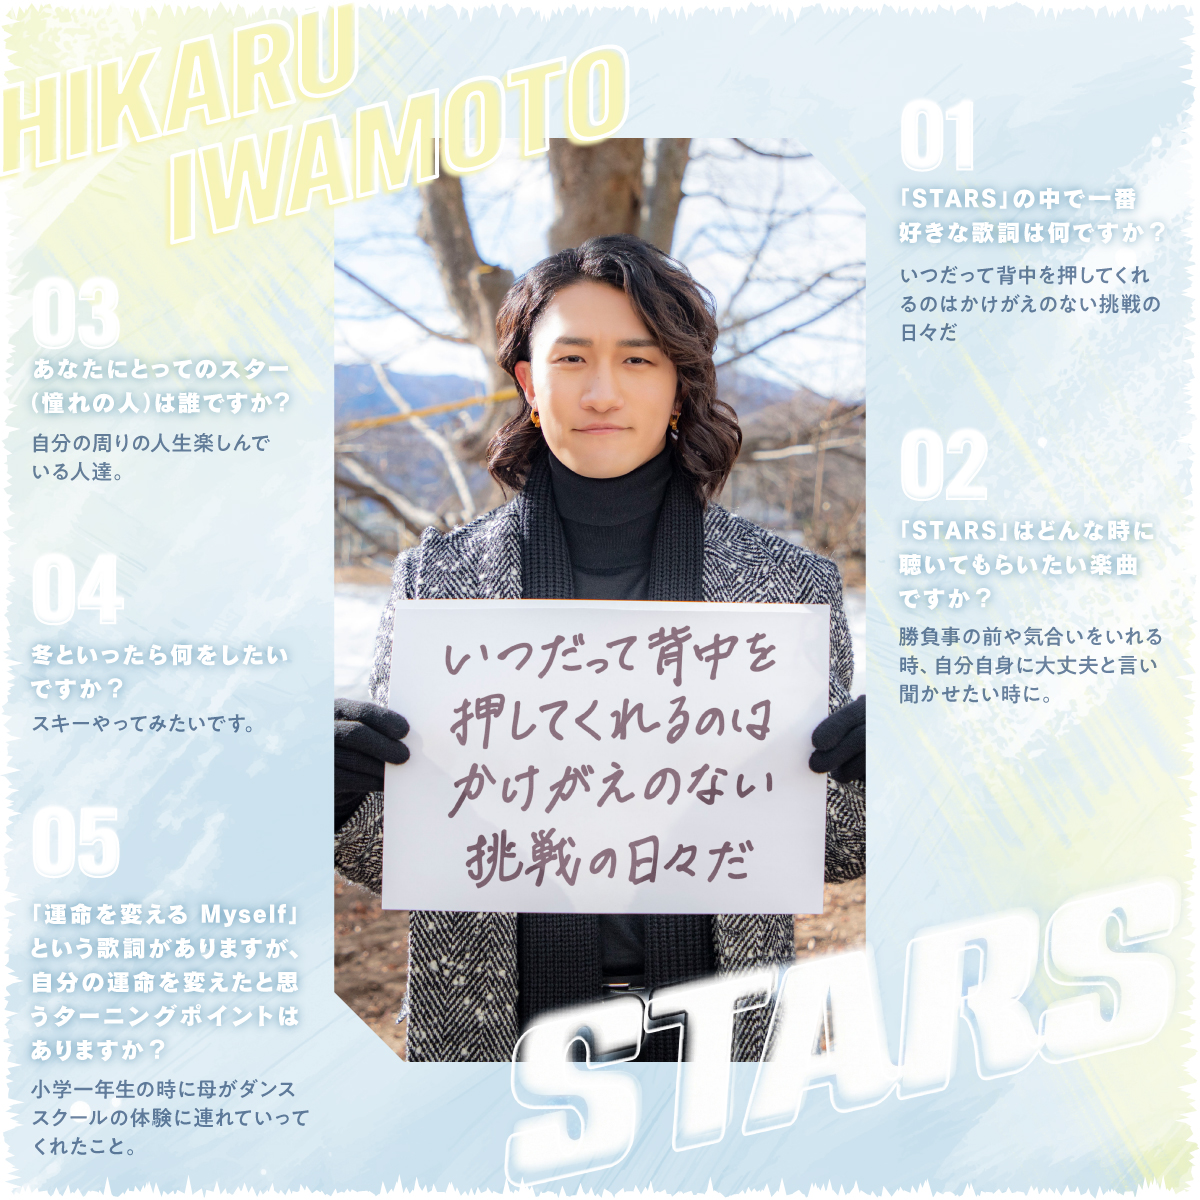 HIKARU
IWAMOTO
01
「STARS」の中で一番
好きな歌詞は何ですか？
いつだって背中を押してくれ
るのはかけがえのない挑戦の
日々だ
02
「STARS」はどんな時に
聴いてもらいたい楽曲
ですか？
勝負事の前や気合いをいれる
時、自分自身に大丈夫と言い
聞かせたい時に。
03
あなたにとってのスター
(憧れの人)は誰ですか？
自分の周りの人生楽しんで
いる人達。
04
冬といったら何をしたい
ですか？
スキーやってみたいです。
05
「運命を変える Myself」
という歌詞がありますが、
自分の運命を変えたと思
うターニングポイントは
ありますか？
小学一年生の時に母がダンス
スクールの体験に連れていって
くれたこと。
いつだって背中を
押してくれるのは
かけがえのない
挑戦の日々だ
STARS